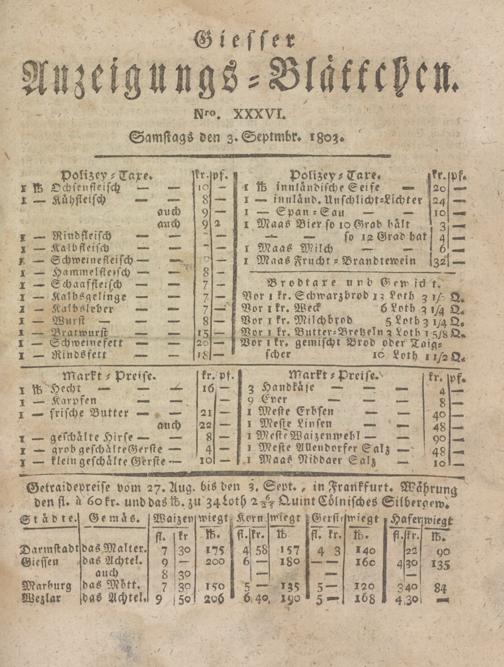 Giesser
Anzeigungs-Blättchen.
Nro. XXXVI.
Samstags den 3. Septmbr. 1803.
Polizey-Taxe. kr. pf.
1 ℔ Ochsenfleisch — — 10 —
1 — Kühfleisch — — 8 —
auch 9 —
auch 9 2
1 — Rindfleisch — —
1 — Kalbfleisch — —
1 — Schweinefleisch — —
1 — Hammelfleisch — 8 —
1 — Schaaffleisch — 7 —
1 — Kalbsgelinge — 7 —
1 — Kalbsleber — 7 —
1 — Wurst — — 8 —
1 — Bratwurst — — 15 —
1 — Schweinefett — 20 —
1 — Rindsfett — — 18 —
Polizey-Taxe. kr. pf.
1 ℔ innländische Seife — 20 —
1 — innländ. Unschlicht-Lichter 24 —
1 — Span-Sau — — 10 —
1 Maas Bier so 10 Grad hält 3 —
— — so 12 Grad hat 4 —
1 Maas Milch — — 6 —
1 Maas Frucht-Brandtewein 32 —
Brodtaxe und Gewicht.
Vor 1 kr. Schwarzbrod 13 Loth Q.
Vor 1 kr. Weck 6 Loth 3 1/4 Q.
Vor 1 kr. Milchbrod 5 Loth 3 1/4 Q.
Vor 1 kr. Butter-Bretzeln 3 Loth 1 5/8 Q.
Vor 1 kr. gemischt Brod oder Taig-
scher 16 Loth 1 1/2 Q.
Markt-Preise. kr. pf.
1 ℔ Hecht — — 16 —
1 — Karpfen — —
1 — frische Butter — 21 —
auch 22 —
1 — geschälte Hirse — 8 —
1 — grob geschälte Gerste — 4 —
1 — klein geschälte Gerste — 10 —
Markt-Preise. kr. pf.
3 Handkäze — — 4 —
9 Eyer — — 8 —
1 Meste Erbsen — — 40 —
1 Meste Linsen — — 48 —
1 Meste Waizenwehl — 90 —
1 Meste Allendorfer Salz — 48 —
1 Maas Niddaer Salz — 10 —
Getraidepreise vom 27. Aug. bis den 3. Sept., in Frankfurt. Währung
den fl. à 60 kr. und das ℔. zu 34 Loth 2 Quint Cölnisches Silbergew.
Städte. Gemäs. Waizen wiegt Korn wiegt Gerste wiegt Hafer wiegt
fl. kr. ℔. fl. kr. ℔. fl. kr. ℔. fl. kr. ℔.
Darmstadt das Malter. 7 30 175 4 58 157 4 3 140 22 90
Giessen das Achtel. 9 — 200 6 — 180 — — 160 4 30 135
auch 8 30 — — — —
Marburg das Mött. 7 30 150 5 — 135 5 — 120 3 40 84
Wezlar das Achtel. 9 50 206 6 40 190 5 — 168 4 30 —